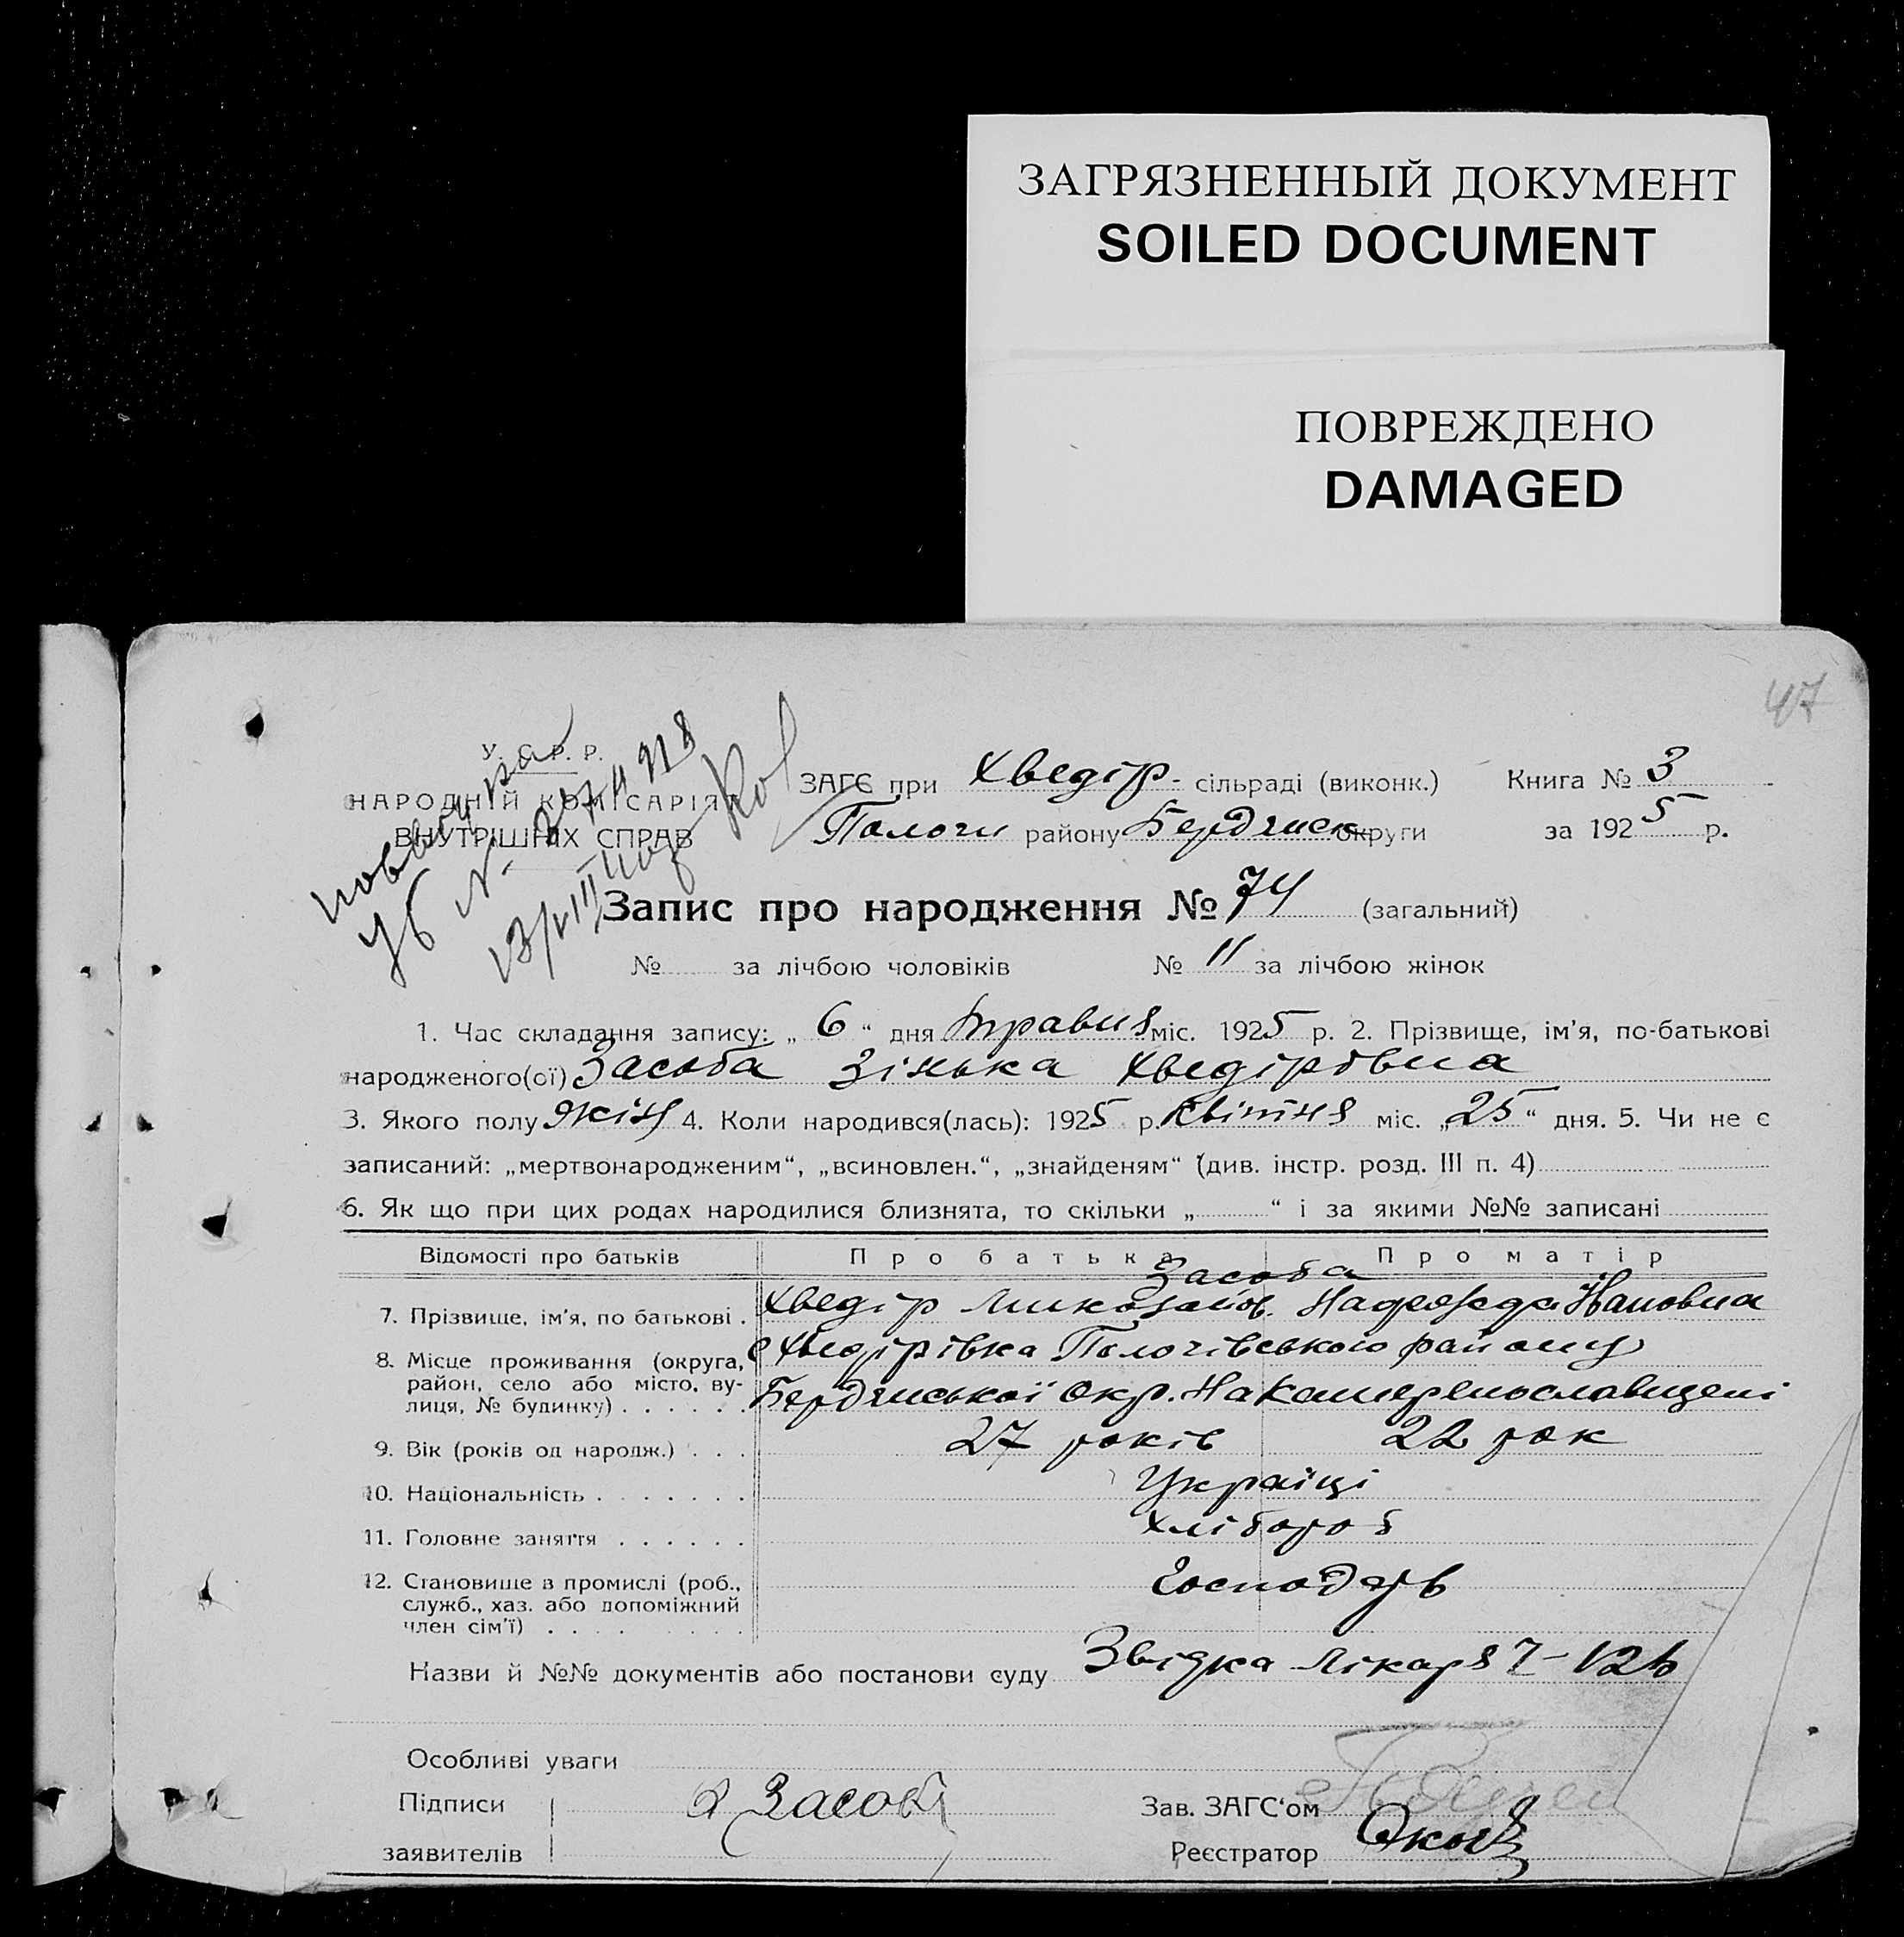 ЗАГРЯЗНЕННЫЙ ДОКУМЕНТ
SOILED DOCUMENT
ПОВРЕЖДЕНО
DAMAGED
47
У. С. Р. Р.
НАРОДНІЙ КОМІСАРІЯТ
ВНУТРІШНІХ СПРАВ
ЗАГС при Хведір- сільраді (виконк.) Книга № 3
Пологи району Бердянськ округи за 1925 р.
Запис про народження № 74 (загальний)
№ за лічбою чоловіків № 11 за лічбою жінок
1. Час складання запису: „ 6 “ дня травня міс. 1925 р. 2. Прізвище, ім’я, по-батькові
народженого(ої) Засоба Зінька Хведірівна
3. Якого полу жін 4. Коли народився(лась): 1925 р. Квітня міс. „25“ дня. 5. Чи не є
записаний: „мертвонародженим“, „всиновлен.“, „знайденям“ (див. інстр. розд. III п. 4)
6. Як що при цих родах народилися близнята, то скільки „ “ і за якими №№ записані
Відомості про батьків Про батька Про матір
Засоба
7. Прізвище, ім’я, по батькові . Хведір Миколайов. Надежда
8. Місце проживання (округа, с Хведірівка Пологівського району
район, село або місто, ву-
лиця, № будинку) . . . . . . Бердянської окр. На Катеринославщені
9. Вік (років од народж.) . . . 27 років 22 рок
10. Національність . . . . . . . Україці
11. Головне заняття . . . . . . Хлібороб
12. Становише в промислі (роб., Господарь
служб., хаз. або допоміжний
член сім’ї) . . . . . . . . .
Назви й №№ документів або постанови суду Звідка Лікаря
Особливі уваги
Підписи Засоба Зав. ЗАГС‘ом
заявителів Реєстратор